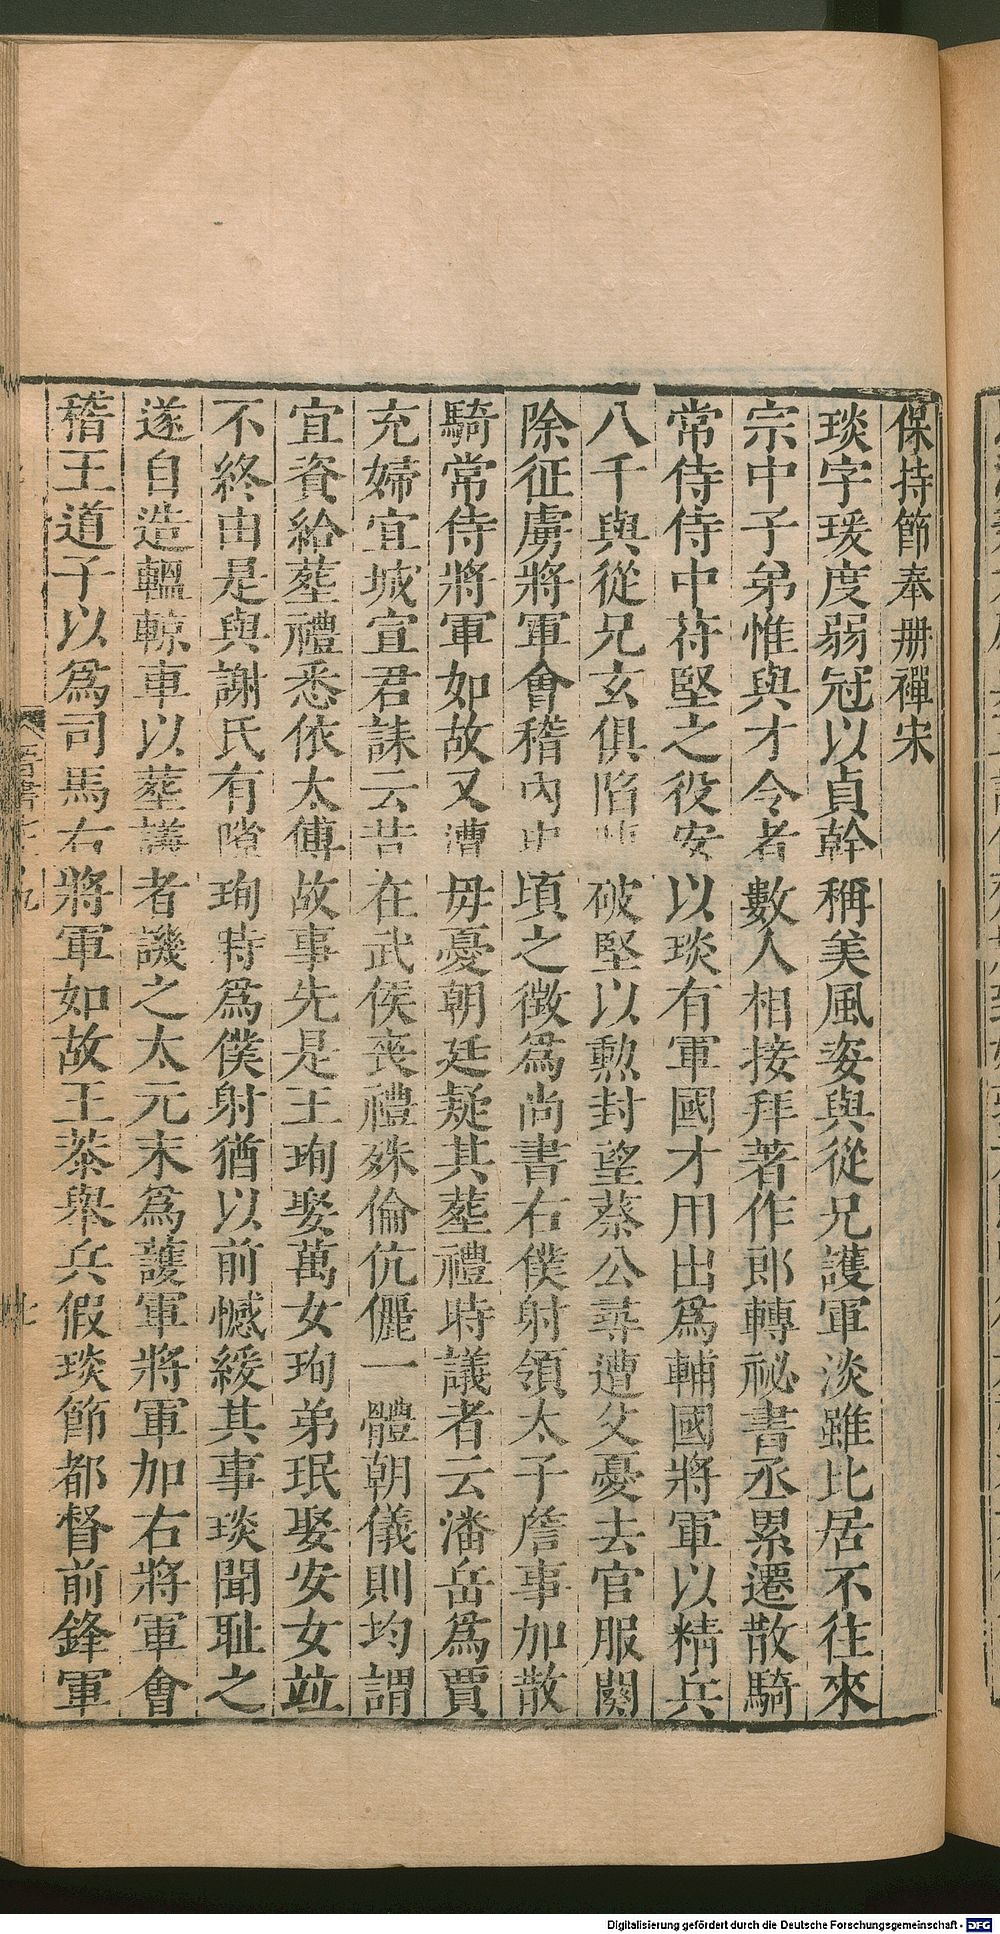 保持節奉册禪宋
琰字瑗度弱冠以貞幹稱美風姿與從兄護軍淡雖比居不往來
宗中子弟惟與才令者數人相接拜著作郎轉祕書丞累遷散騎
常侍侍中苻堅之役安以琰有軍國才用出爲輔國將軍以精兵
八千與從兄玄俱陷陣破堅以勲封望蔡公尋遭父憂去官服闋
除征虜將軍會稽內史頃之徵爲尚書右僕射領太子詹事加散
騎常侍將軍如故又遭母憂朝廷疑其塟禮時議者云潘岳爲賈
充婦宜城宣君誄云昔在武侯喪禮殊倫伉儷一體朝儀則均謂
宜資給塟禮悉依太傅故事先是王珣娶萬女珣弟珉娶安女竝
不終由是與謝氏有隙珣時爲僕射猶以前憾緩其事琰聞耻之
遂自造轀輬車以塟議者譏之太元末爲護軍將軍加右將軍會
稽王道子以爲司馬右將軍如故王恭舉兵假琰節都督前鋒軍
Digitalisierung gefördert durch die Deutsche Forschungsgemeinschaft - DFG